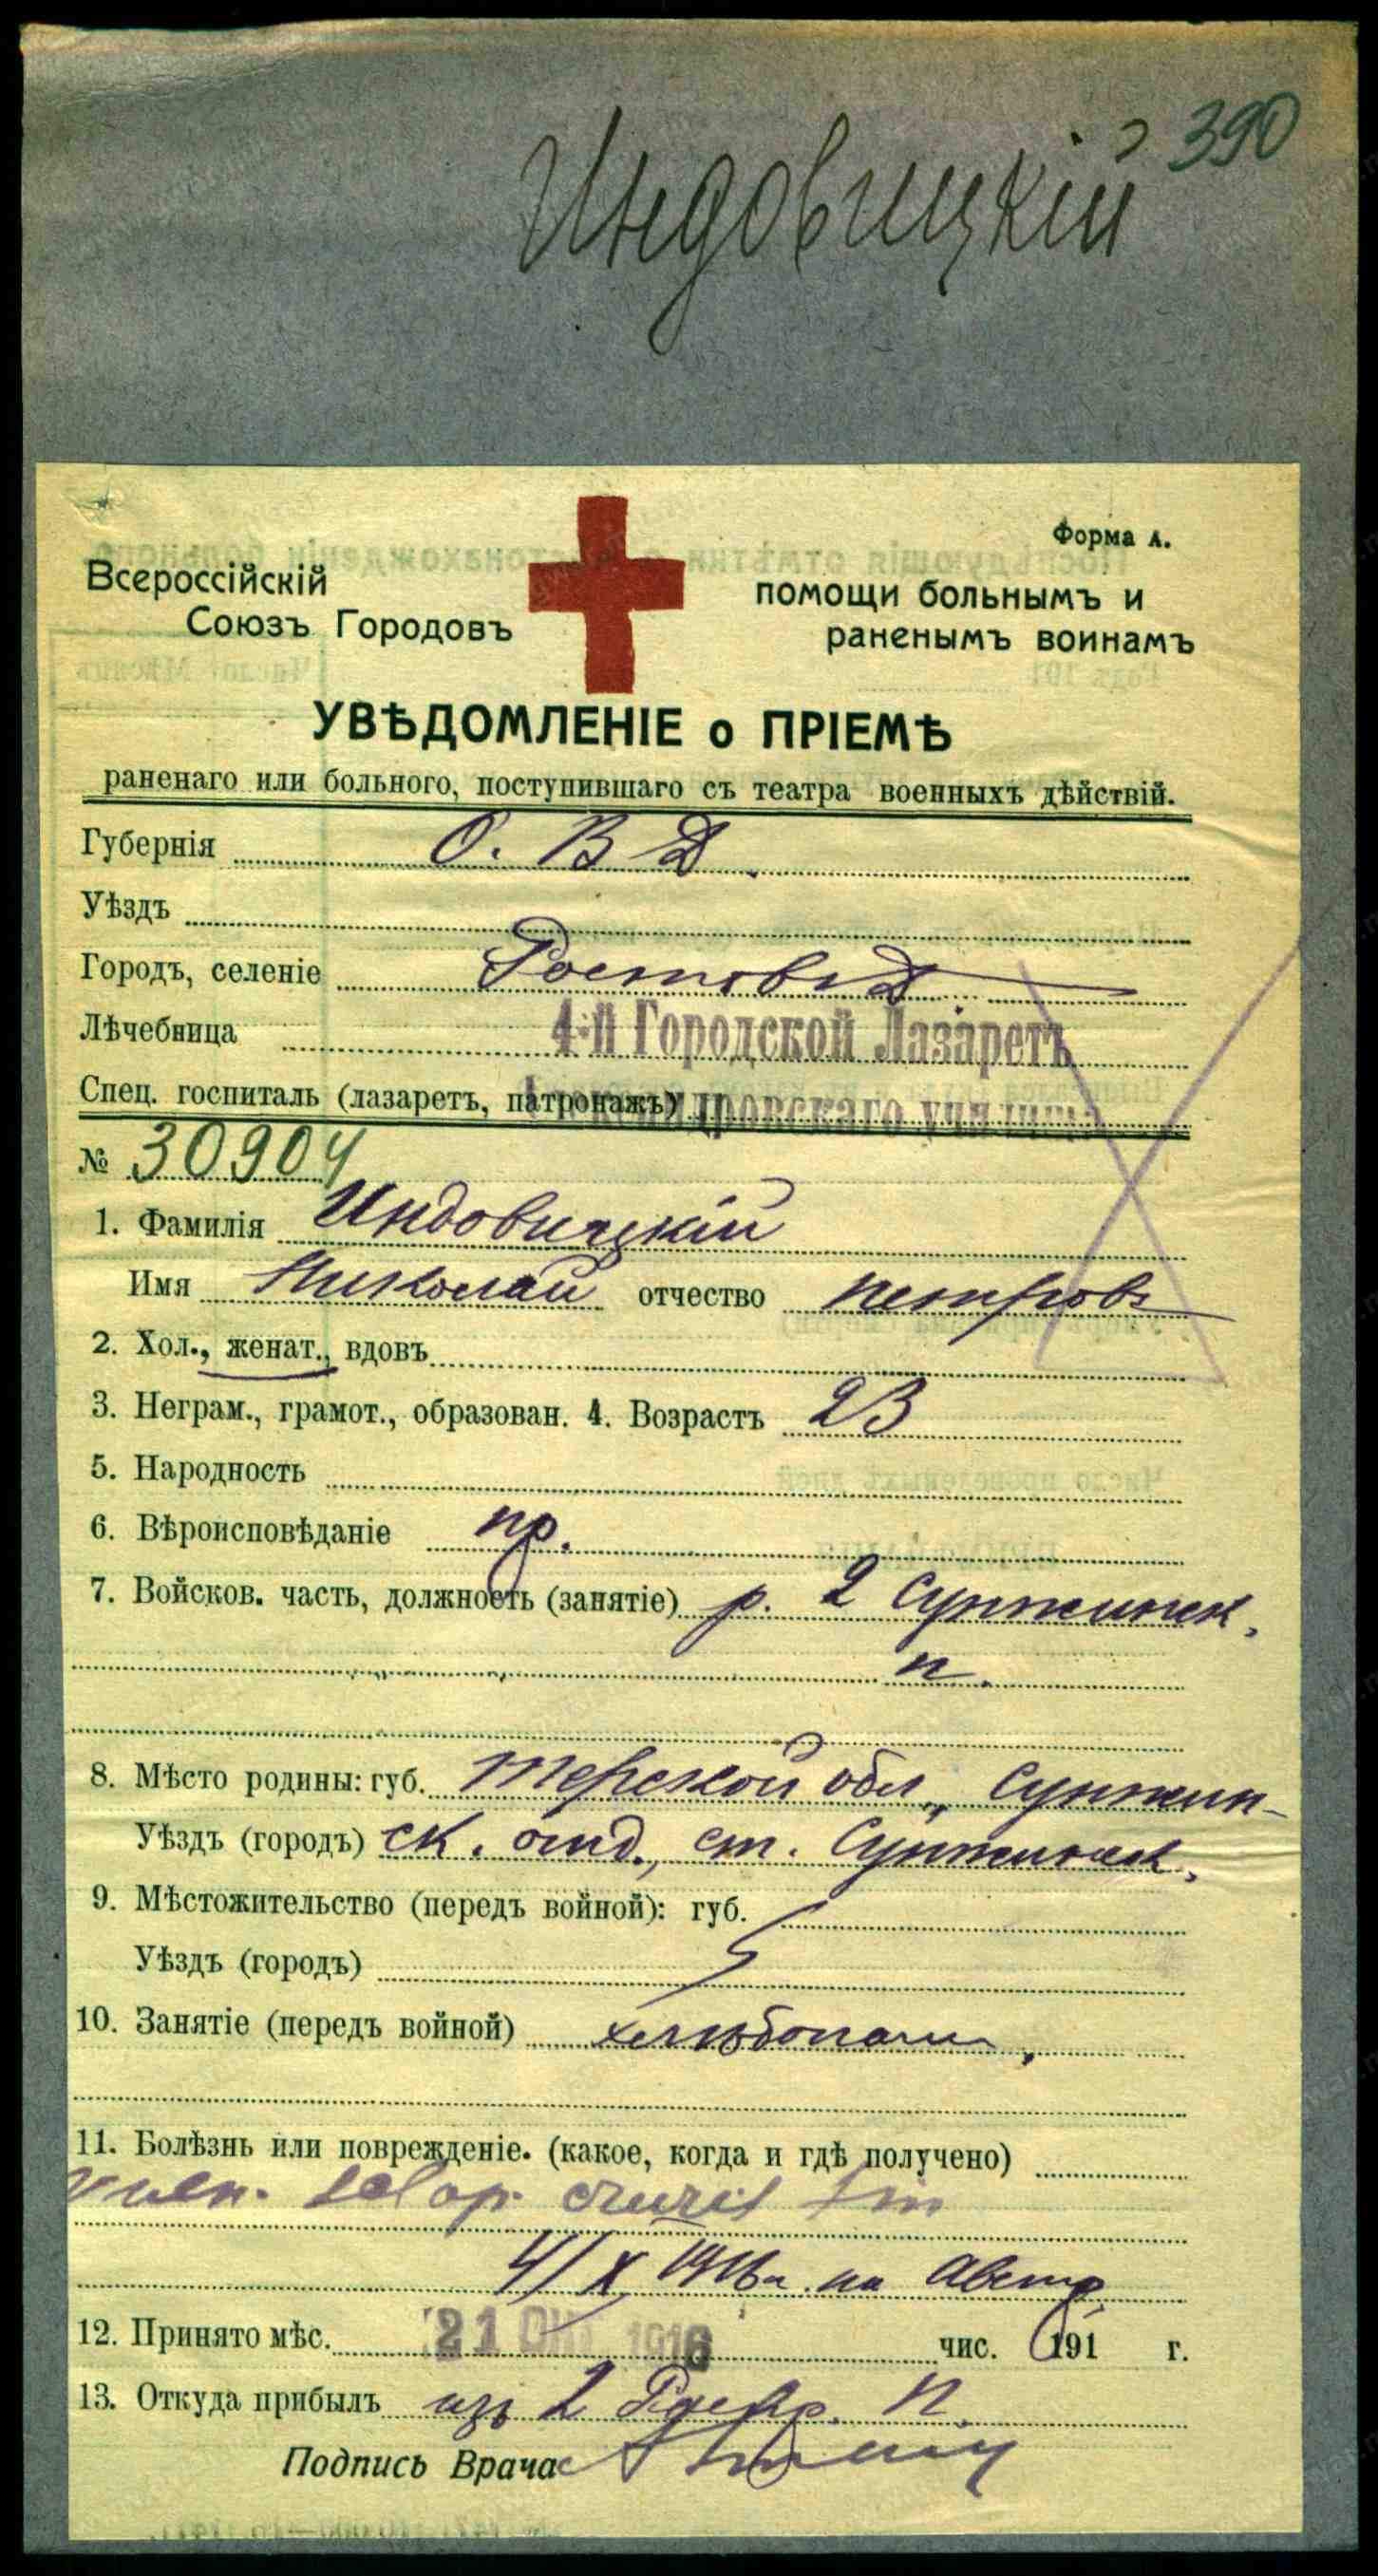 390
Индовицкій
Форма А.
Всероссійскій
Союзъ Городовъ
помощи больнымъ и
раненымъ воинамъ
УВѢДОМЛЕНІЕ о ПРІЕМѢ
раненаго или больного, поступившаго съ театра военныхъ дѣйствій.
Губернія О. В Д
Уѣздъ
Городъ, селеніе Ростовъ Д
Лѣчебница 4-й Городской Лазаретъ
Спец. госпиталь (лазаретъ, патронажъ)
№ 30904
1. Фамилія Индовицкій
Имя Николай отчество Петровъ
2. Хол., женат., вдовъ
3. Неграм., грамот., образован. 4. Возрастъ 23
5. Народность
6. Вѣроисповѣданіе пр.
7. Войсков. часть, должность (занятіе) р. 2 Сунженск.
п.
8. Мѣсто родины: губ. Терской обл., Сунжен-
Уѣздъ (городъ) ск. отд., ст. Сунженск.
9. Мѣстожительство (передъ войной): губ.
Уѣздъ (городъ)
10. Занятіе (передъ войной)
11. Болѣзнь или поврежденіе. (какое, когда и гдѣ получено)
vuln. sclop. cruris sin
4/X 1916 г. на Австр
12. Принято мѣс. 21 ОКТ 1916 чис. 191 г.
13. Откуда прибылъ изъ 2 п.
Подпись Врача